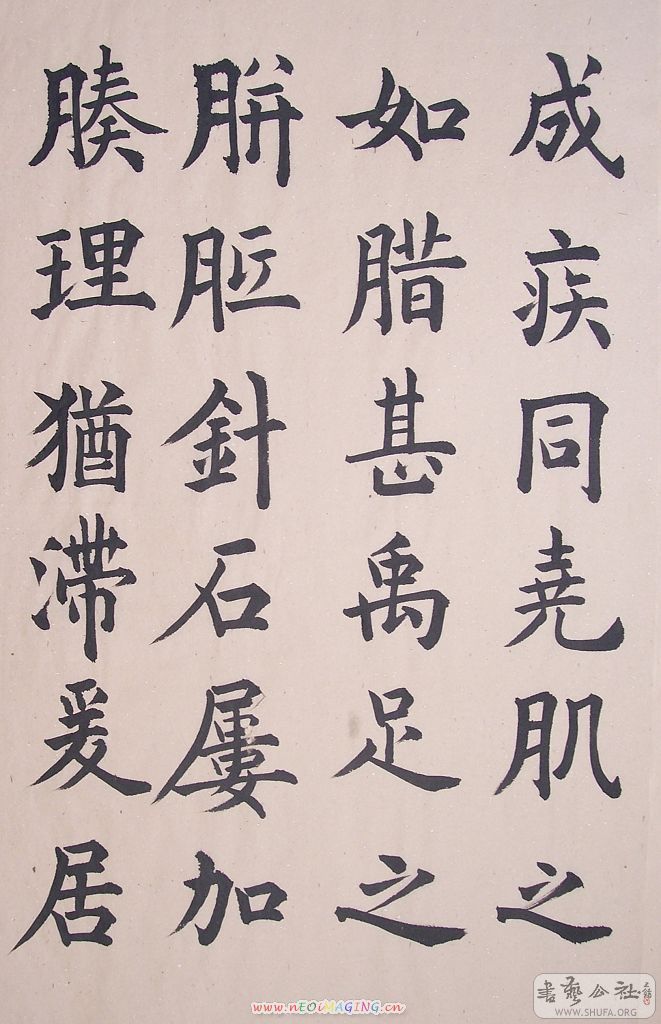 成疾同堯肌之
如腊甚禹足之
胼胝針石屢加
腠理猶滯爰居
書藝公社
WWW.SHUFA.ORG
www.nEOiMAGING.cn